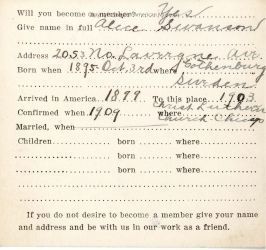 Will you become a member? Yes!
Give name in full Alice Swanson
Address 2053 No. Lavergne Ave.
Born when 1895 Oct. 3rd where Gothenburg
Sweden
Arrived in America 1899 To this place 1903
Christ Lutheran
Confirmed when 1909 where Church Chicago
Married, when
Children born where
born where
born where
If you do not desire to become a member give your name
and address and be with us in our work as a friend.